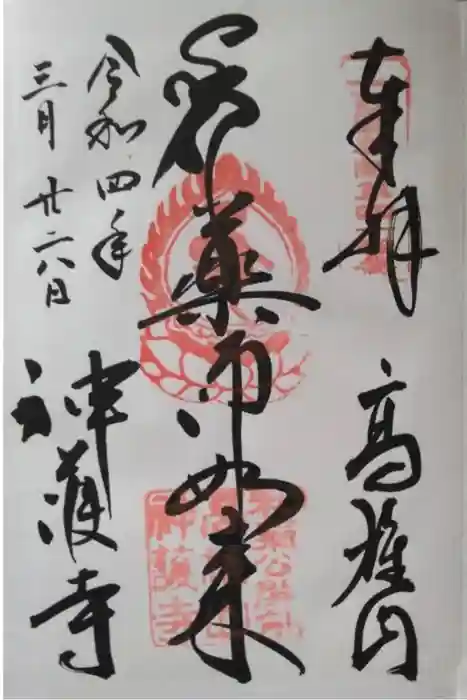 奉拝
高雄山
薬師如来
令和四年
三月廿六日
神護寺
神護寺